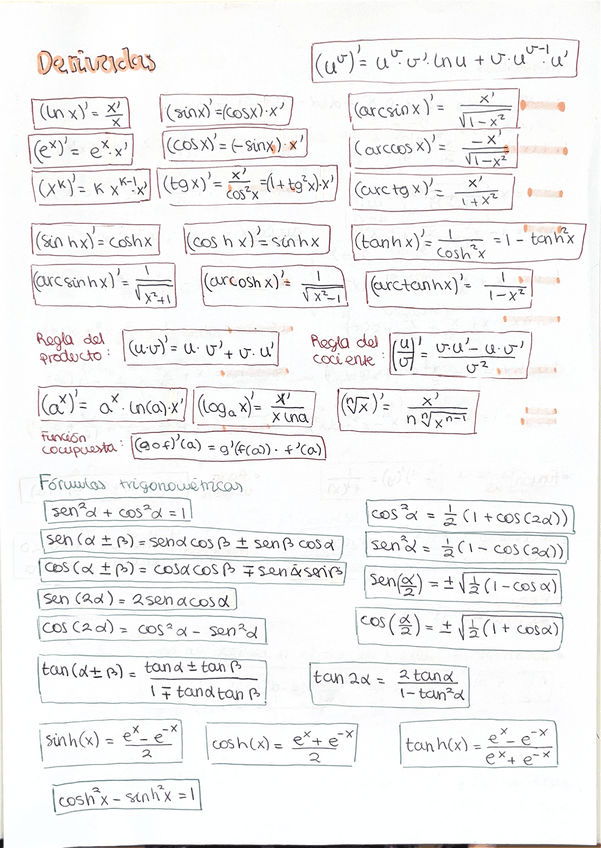 Derivadas
(u^v)' = u^v · v' · ln u + v · u^(v-1) · u'
(ln x)' = x'/x (sinx)' = (cosx)·x' (arcsinx)' = x'/√(1-x²)
(e^x)' = e^x · x' (cosx)' = (-sinx)·x' (arccosx)' = -x'/√(1-x²)
(x^k)' = k x^(k-1)·x' (tgx)' = x'/cos²x = (1+tg²x)·x' (arctgx)' = x'/(1+x²)
(sinhx)' = coshx (coshx)' = sinhx (tanhx)' = 1/cosh²x = 1 - tanh²x
(arcsinhx)' = 1/√(x²+1) (arcoshx)' = 1/√(x²-1) (arctanhx)' = 1/(1-x²)
Regla del producto: (u·v)' = u·v' + v·u' Regla del cociente: (u/v)' = (v·u' - u·v')/v²
(a^x)' = a^x · ln(a)·x' (log_a x)' = x'/(x lna) (ⁿ√x)' = x'/(n ⁿ√(x^(n-1)))
Función compuesta: (gof)'(a) = g'(f(a)) · f'(a)
Fórmulas trigonométricas
sen²α + cos²α = 1 cos²α = 1/2 (1 + cos(2α))
sen(α ± β) = senα cosβ ± senβ cosα sen²α = 1/2 (1 - cos(2α))
cos(α ± β) = cosα cosβ ∓ senα senβ sen(α/2) = ± √(1/2 (1 - cosα))
sen(2α) = 2senα cosα
cos(2α) = cos²α - sen²α cos(α/2) = ± √(1/2 (1 + cosα))
tan(α ± β) = (tanα ± tanβ)/(1 ∓ tanα tanβ) tan2α = 2tanα/(1 - tan²α)
sinh(x) = (e^x - e^-x)/2 cosh(x) = (e^x + e^-x)/2 tanh(x) = (e^x - e^-x)/(e^x + e^-x)
cosh²x - sinh²x = 1